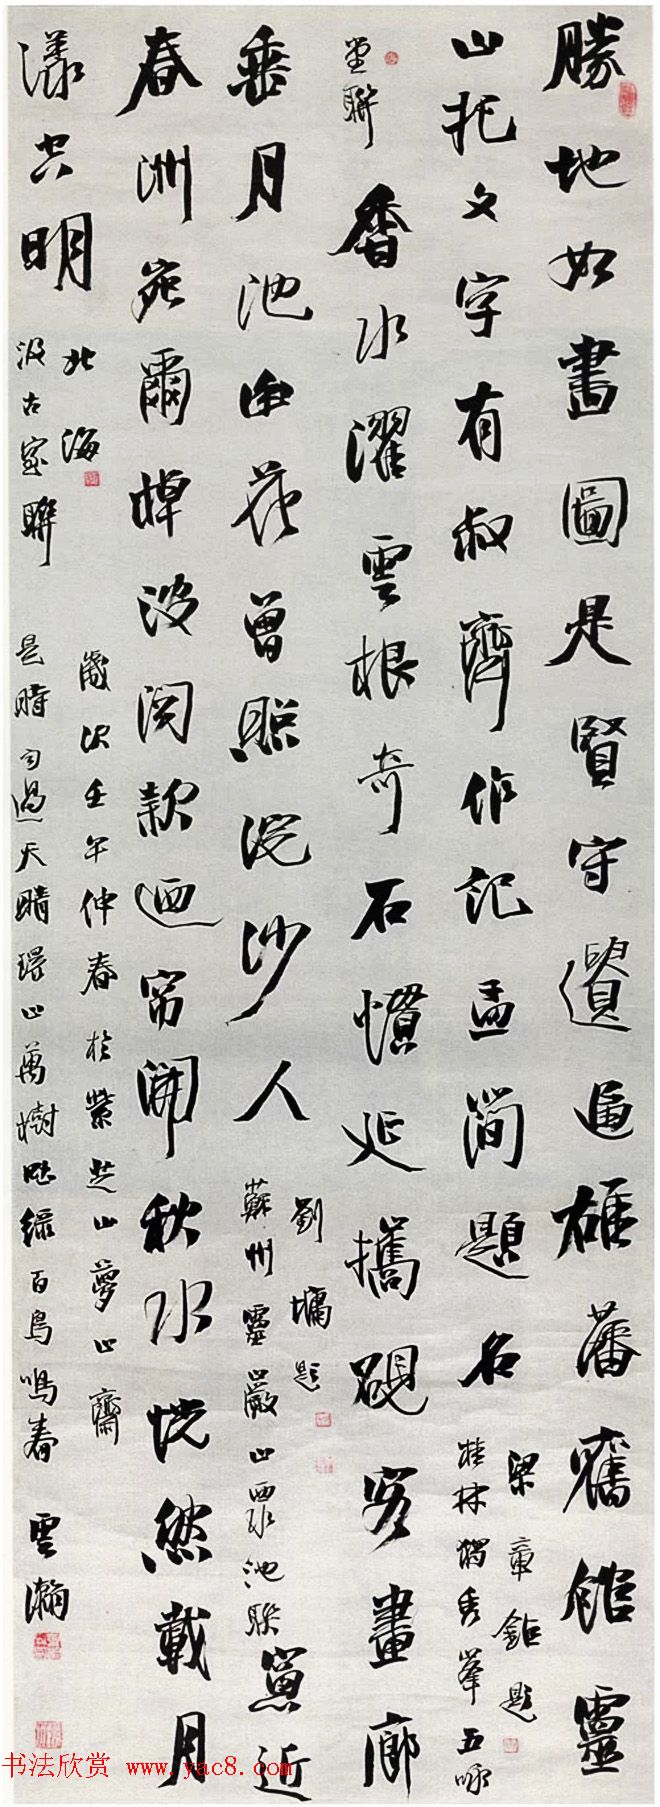 勝地如畫圖是賢守遺區雄藩舊館靈
山托文字有叔齊作記孟簡題名
梁章鉅題
桂林獨秀峯五咏
堂聯
香水濯雲根奇石慣延攜硯客畫廊
垂月池幽花曾照浣沙人
劉墉題
蘇州靈巖山西池聯
窗近
春洲宛爾棹波閣款迴帘開秋水恍然載月
漾空明
北海
汲古家聯
歲次壬午仲春於紫芝山夢山齋
是時 過天晴環山萬樹 綠百鳥鳴春
雲瀚
书法欣赏 www.yac8.com